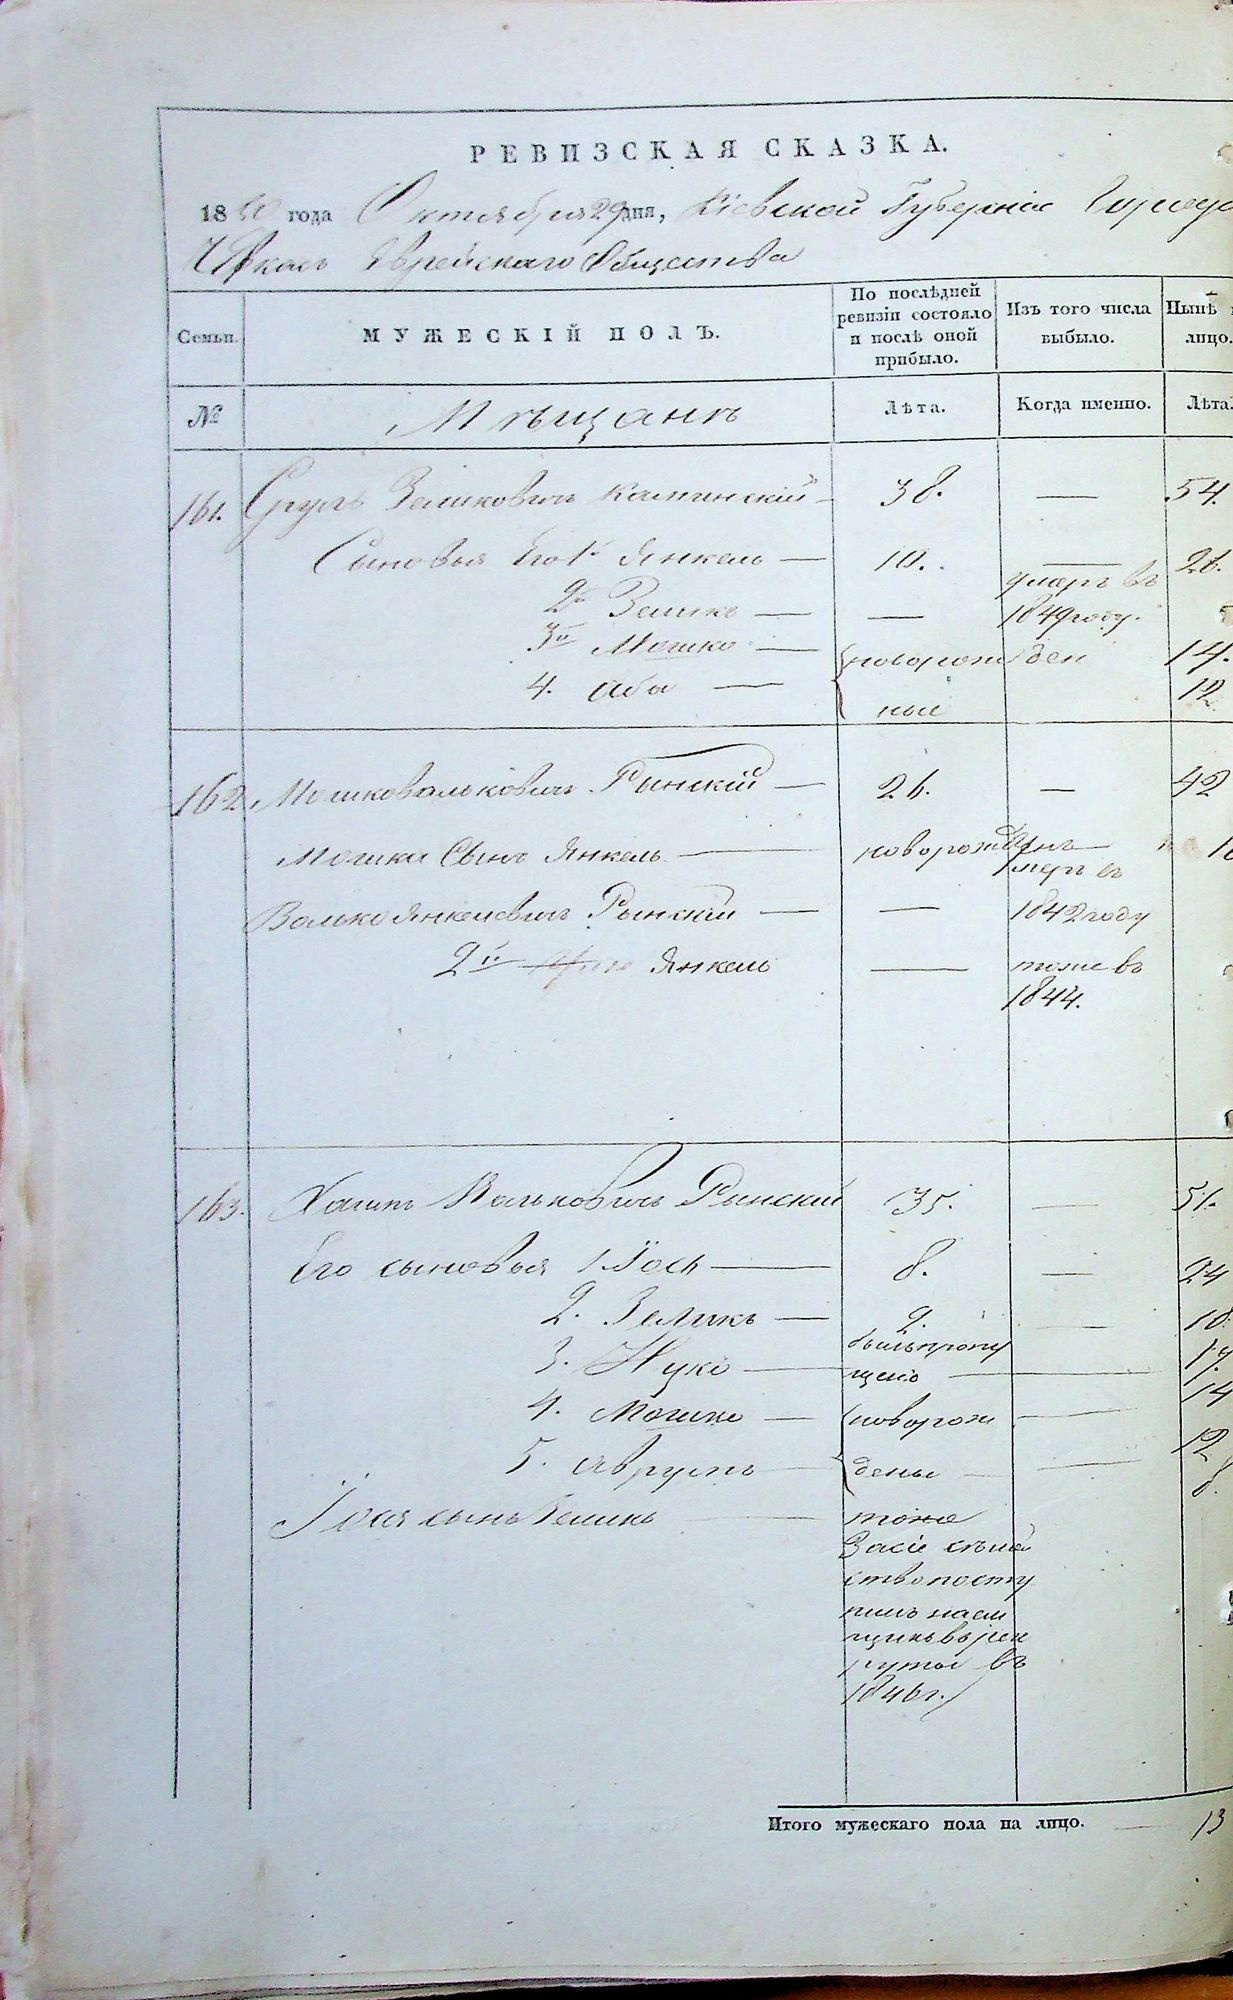 РЕВИЗСКАЯ СКАЗКА.
1850 года Октября 29 дня, Кіевской Губерніи Города
Черкасъ Еврейскаго Общества
Семьи.
МУЖЕСКІЙ ПОЛЪ.
По послѣдней ревизіи состояло и послѣ оной прибыло.
Изъ того числа выбыло.
Нынѣ
лицо.
№
Мѣщанъ
Лѣта.
Когда именно.
Лѣта.
161. Сруль Зеликовичъ Каминскій 38. — 54.
Сыновья Его 1й Янкель — 10. — 26.
2й Зеликъ — — умеръ въ 1849 году.
3й Мошко — новорож ден 14.
4. Аба — ные 12
162 Мошко Вольковичъ Рынскій — 26. — 42
Мошка Сынъ Янкель — новорожденъ —
Волько Янкелевичъ Рынскій — — умеръ въ 1842 году
2й Янкель — тоже въ 1844.
163. Хаимъ Вольковичъ Рынскій 35. — 51.
Его сыновья 1. Іось — 8. — 24
2. Зеликъ — 2. — 18.
3. Нухо — былъ пропу щенъ — 17.
4. Мошко — новорож — 14
5. Аврумъ — дены — 12
Іося сынъ Зеликъ — тоже 8.
За сіе семей
ство посту
пилъ наем
щикъ въ рек
руты въ
1846 г.
Итого мужескаго пола на лицо. — 13